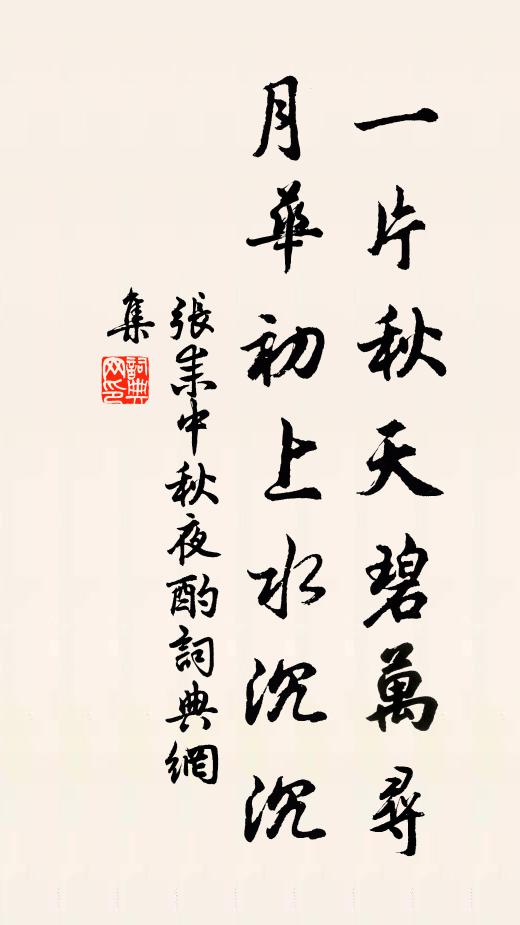 一片秋天碧萬尋
月華初上水沉沉
張耒中秋夜酌詞典網
集
詞典网印